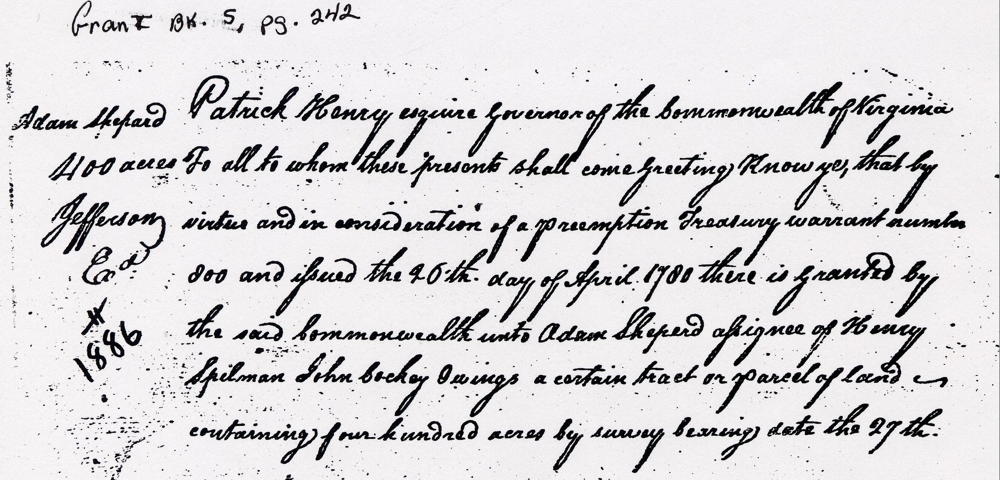 Grant Bk. 5, pg. 242
Adam Shepard
400 acres
Jefferson
Exd
#
1886
Patrick Henry esquire Governor of the Commonwealth of Virginia
To all to whom these presents shall come Greeting Know ye, that by
virtue and in consideration of a preemption Treasury warrant number
800 and issued the 26th. day of April 1780 there is Granted by
the said Commonwealth unto Adam Sheperd assignee of Henry
Spilman John Cockey Owings a certain tract or parcel of land
containing four hundred acres by survey bearing date the 27th.